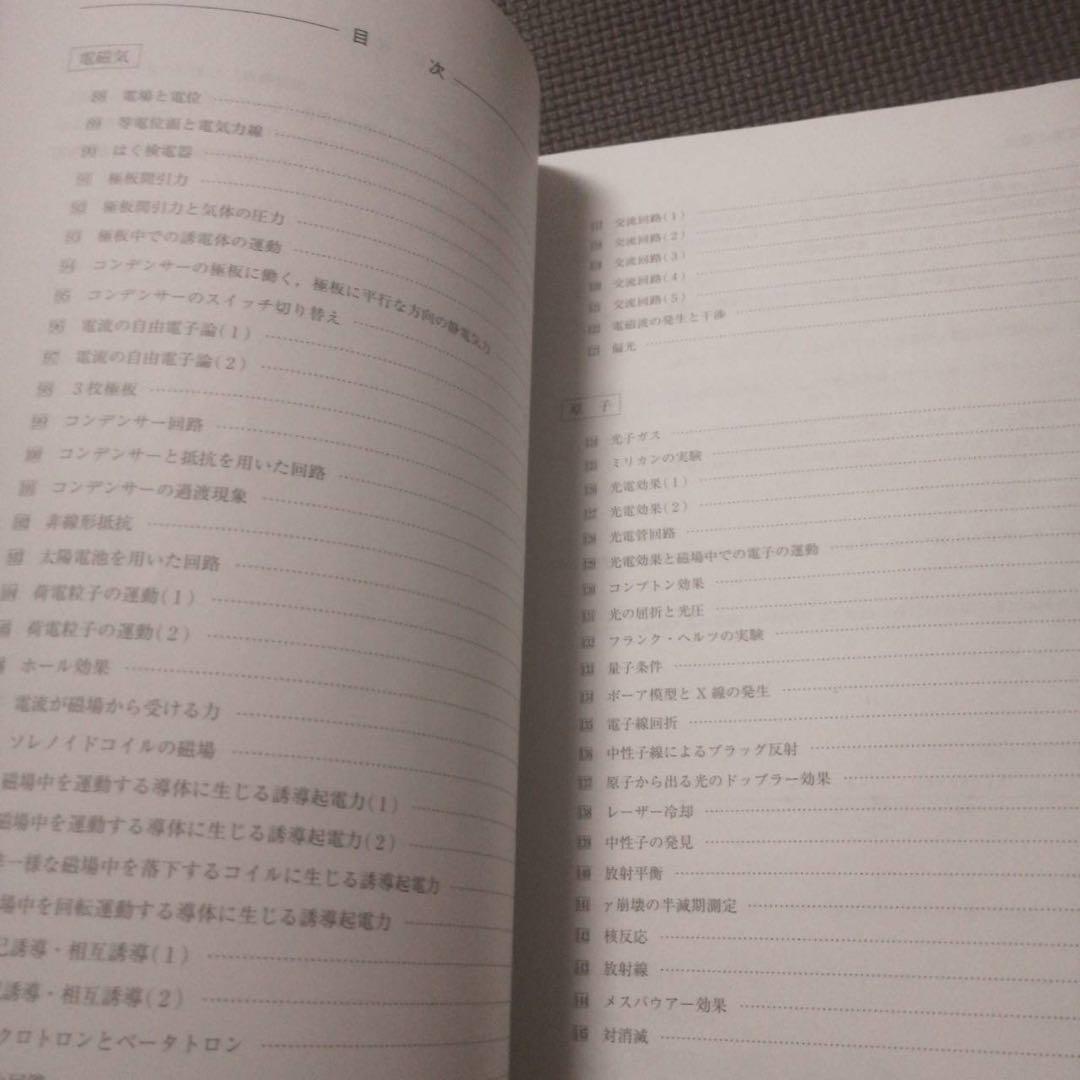 目 次
電磁気
88 電場と電位
89 等電位面と電気力線
90 はく検電器
91 極板間引力
92 極板間引力と気体の圧力
93 極板中での誘電体の運動
94 コンデンサーの極板に働く，極板に平行な方向の静電気力
95 コンデンサーのスイッチ切り替え
96 電流の自由電子論(1)
97 電流の自由電子論(2)
98 3枚極板
99 コンデンサー回路
100 コンデンサーと抵抗を用いた回路
101 コンデンサーの過渡現象
102 非線形抵抗
103 太陽電池を用いた回路
104 荷電粒子の運動(1)
荷電粒子の運動(2)
ホール効果
電流が磁場から受ける力
ソレノイドコイルの磁場
磁場中を運動する導体に生じる誘導起電力(1)
磁場中を運動する導体に生じる誘導起電力(2)
一様な磁場中を落下するコイルに生じる誘導起電力
場中を回転運動する導体に生じる誘導起電力
己誘導・相互誘導(1)
誘導・相互誘導(2)
クロトロンとベータトロン
117 交流回路(1)
118 交流回路(2)
119 交流回路(3)
120 交流回路(4)
121 交流回路(5)
122 電磁波の発生と干渉
123 偏光
原 子
124 光子ガス
125 ミリカンの実験
126 光電効果(1)
127 光電効果(2)
128 光電管回路
129 光電効果と磁場中での電子の運動
130 コンプトン効果
131 光の屈折と光圧
132 フランク・ヘルツの実験
133 量子条件
134 ボーア模型とX線の発生
135 電子線回折
136 中性子線によるブラッグ反射
137 原子から出る光のドップラー効果
138 レーザー冷却
139 中性子の発見
140 放射平衡
141 γ崩壊の半減期測定
142 核反応
143 放射線
144 メスバウアー効果
145 対消滅